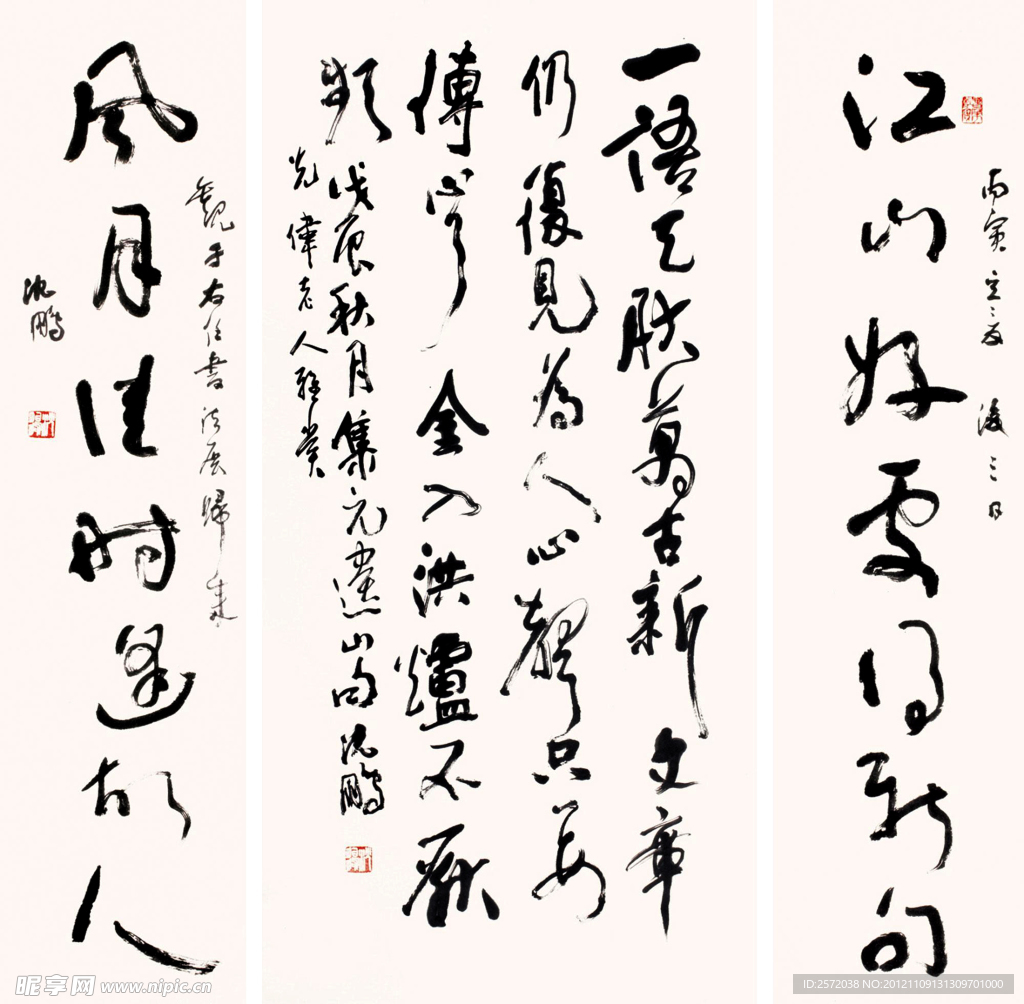 江山好處得新句
丙寅立夏後三日
一語天然萬古新文章
仍復見為人心聲只要
傳心了金入洪爐不厭
頻戊辰秋月集元遺山句沈鵬
光偉老人雅賞
觀于右任書法展歸來
風月佳時逢故人
沈鵬
昵享网 www.nipic.cn
ID:2572038 NO:20121109131309701000